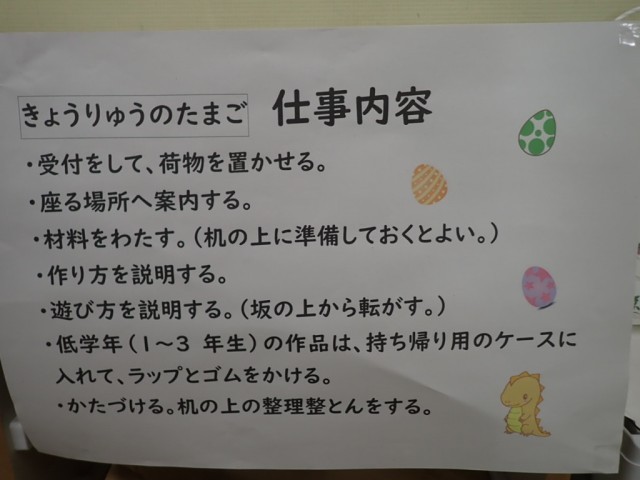 きょうりゅうのたまご 仕事内容
・受付をして、荷物を置かせる。
・座る場所へ案内する。
・材料をわたす。（机の上に準備しておくとよい。）
・作り方を説明する。
・遊び方を説明する。（坂の上から転がす。）
・低学年（１～３ 年生）の作品は、持ち帰り用のケースに
入れて、ラップとゴムをかける。
・かたづける。机の上の整理整とんをする。